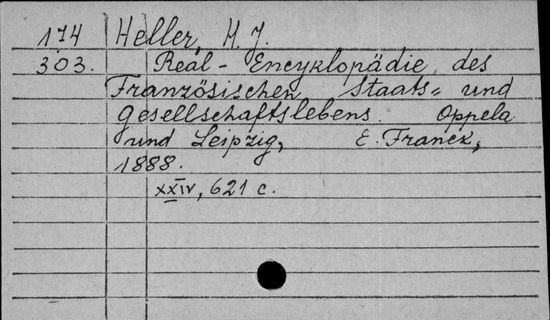 174 Heller, H. J.
303. Real-Encyklopädie des
Französischen Staats- und
Gesellschaftslebens. Oppeln
und Leipzig, E. Franck,
1888.
XXIV, 621 c.